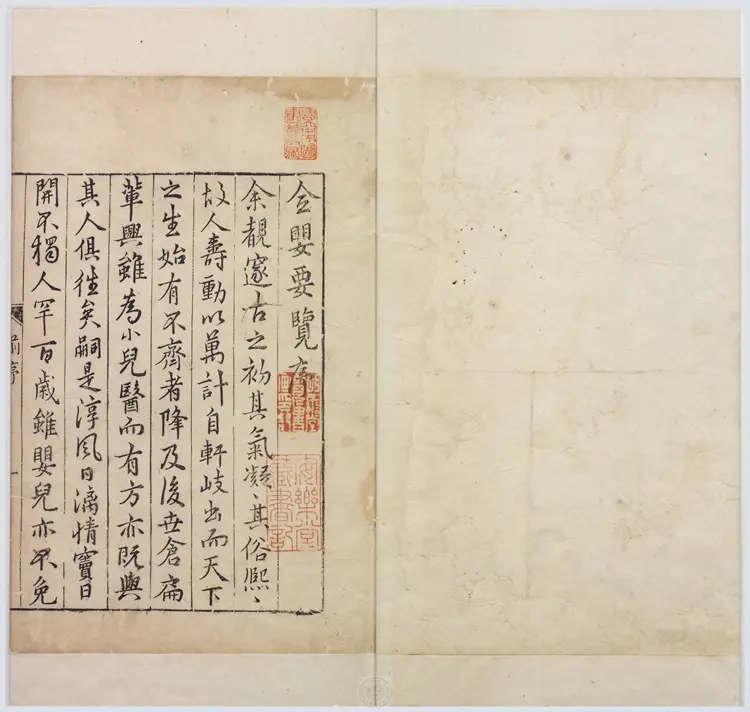 全嬰要覽序
余覩邃古之初其氣凝〻其俗熈〻
故人壽動以萬計自軒岐出而天下
之生始有不齊者降及後世倉扁
輩興雖為小兒醫而有方亦既與
其人俱徃矣嗣是淳風日漓情竇日
開不獨人罕百歲雖嬰兒亦不免
前序
一